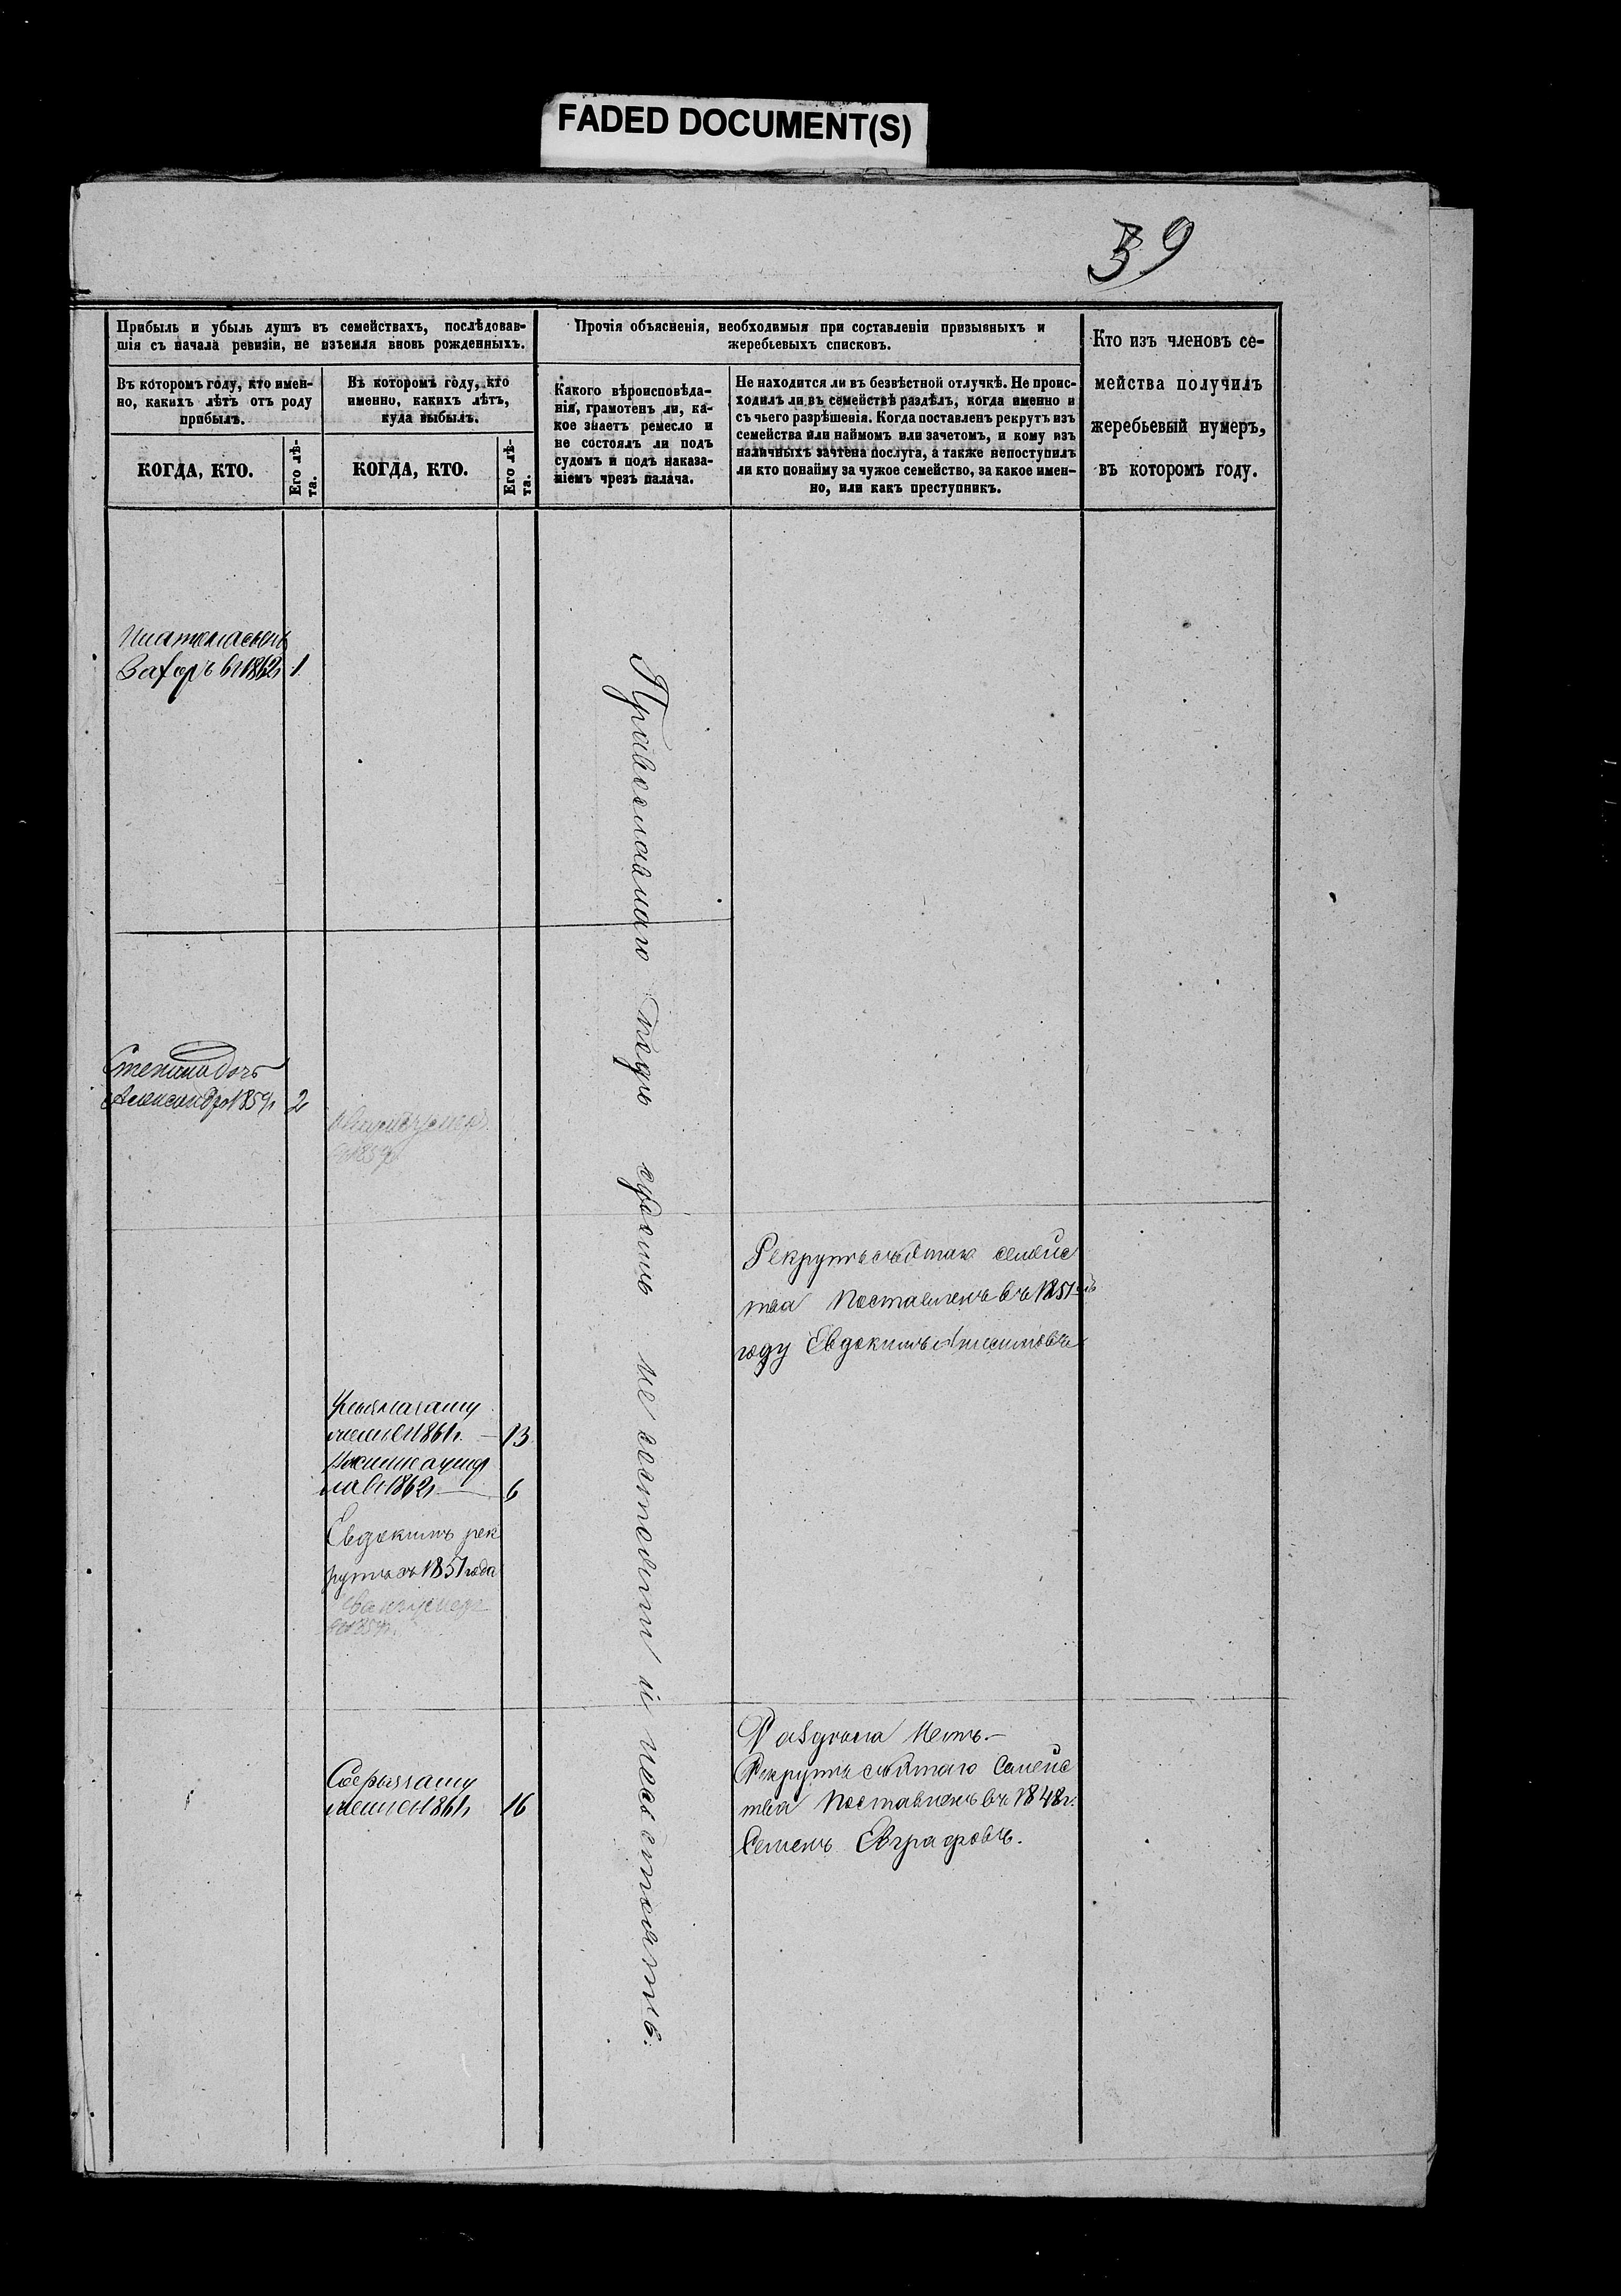 FADED DOCUMENT(S)
39
Прибыль и убыль душъ въ семействахъ, послѣдовав-
шія съ начала ревизіи, не изъемля вновь рожденныхъ.
Прочія объясненія, необходимыя при составленіи призывныхъ и
жеребьевыхъ списковъ.
Кто изъ членовъ се-
мейства получилъ
жеребьевый нумеръ,
въ которомъ году.
Въ которомъ году, кто имен-
но, какихъ лѣтъ отъ роду
прибылъ.
Въ которомъ году, кто
именно, какихъ лѣтъ,
куда выбылъ.
Какого вѣроисповѣда-
нія, грамотенъ ли, ка-
кое знаетъ ремесло и
не состоялъ ли подъ
судомъ и подъ наказа-
ніемъ чрезъ палача.
Не находится ли въ безвѣстной отлучкѣ. Не проис-
ходилъ ли въ семействѣ раздѣлъ, когда именно и
съ чьего разрѣшенія. Когда поставленъ рекрутъ изъ
семейства или наймомъ или зачетомъ, и кому изъ
наличныхъ зачтена послуга, а также непоступилъ
ли кто понайму за чужое семейство, за какое имен-
но, или какъ преступникъ.
КОГДА, КТО.
Его лѣ-
та.
КОГДА, КТО.
Его лѣ-
та.
Захаръ въ 1862 1
Православнаго подъ судомъ не состоятъ и несостояли.
Александръ 1859г 2
1859г
Рекрутъ съ семейс
тва Поставленъ въ 1851мъ
году Евдокимъ Анисимовъ
1861г. 13
1862г 6
Евдокимъ рек
рутъ въ 1851 года
1859г.
1861г 16
Раздѣла Нетъ.-
Рекрутъ съ Семейс
тва Поставленъ въ 1848г.
Семенъ Евграфовъ.